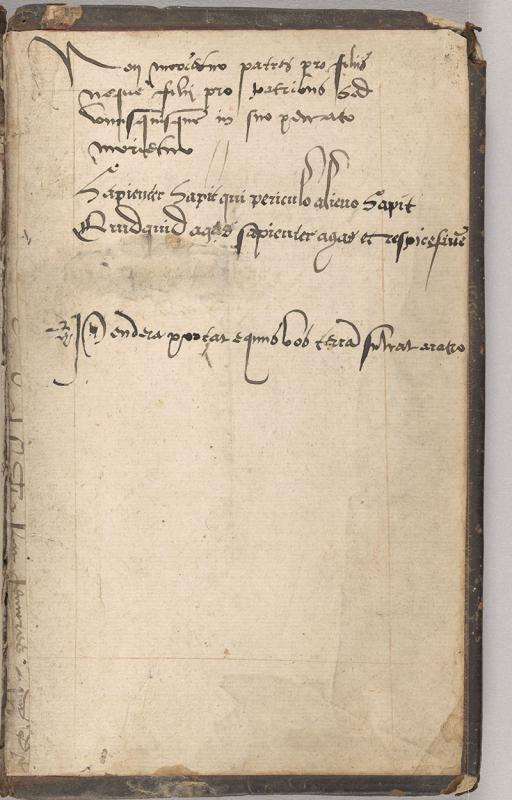 Non morietur patres pro filiis
neque filij pro patribus sed
vnusquisque in suo peccato
morietur
Sapienter sapit qui periculo alieno sapit
Quidquid agas sapienter agas et respice fine
Pondera portat equus bos terra sulcat aratro